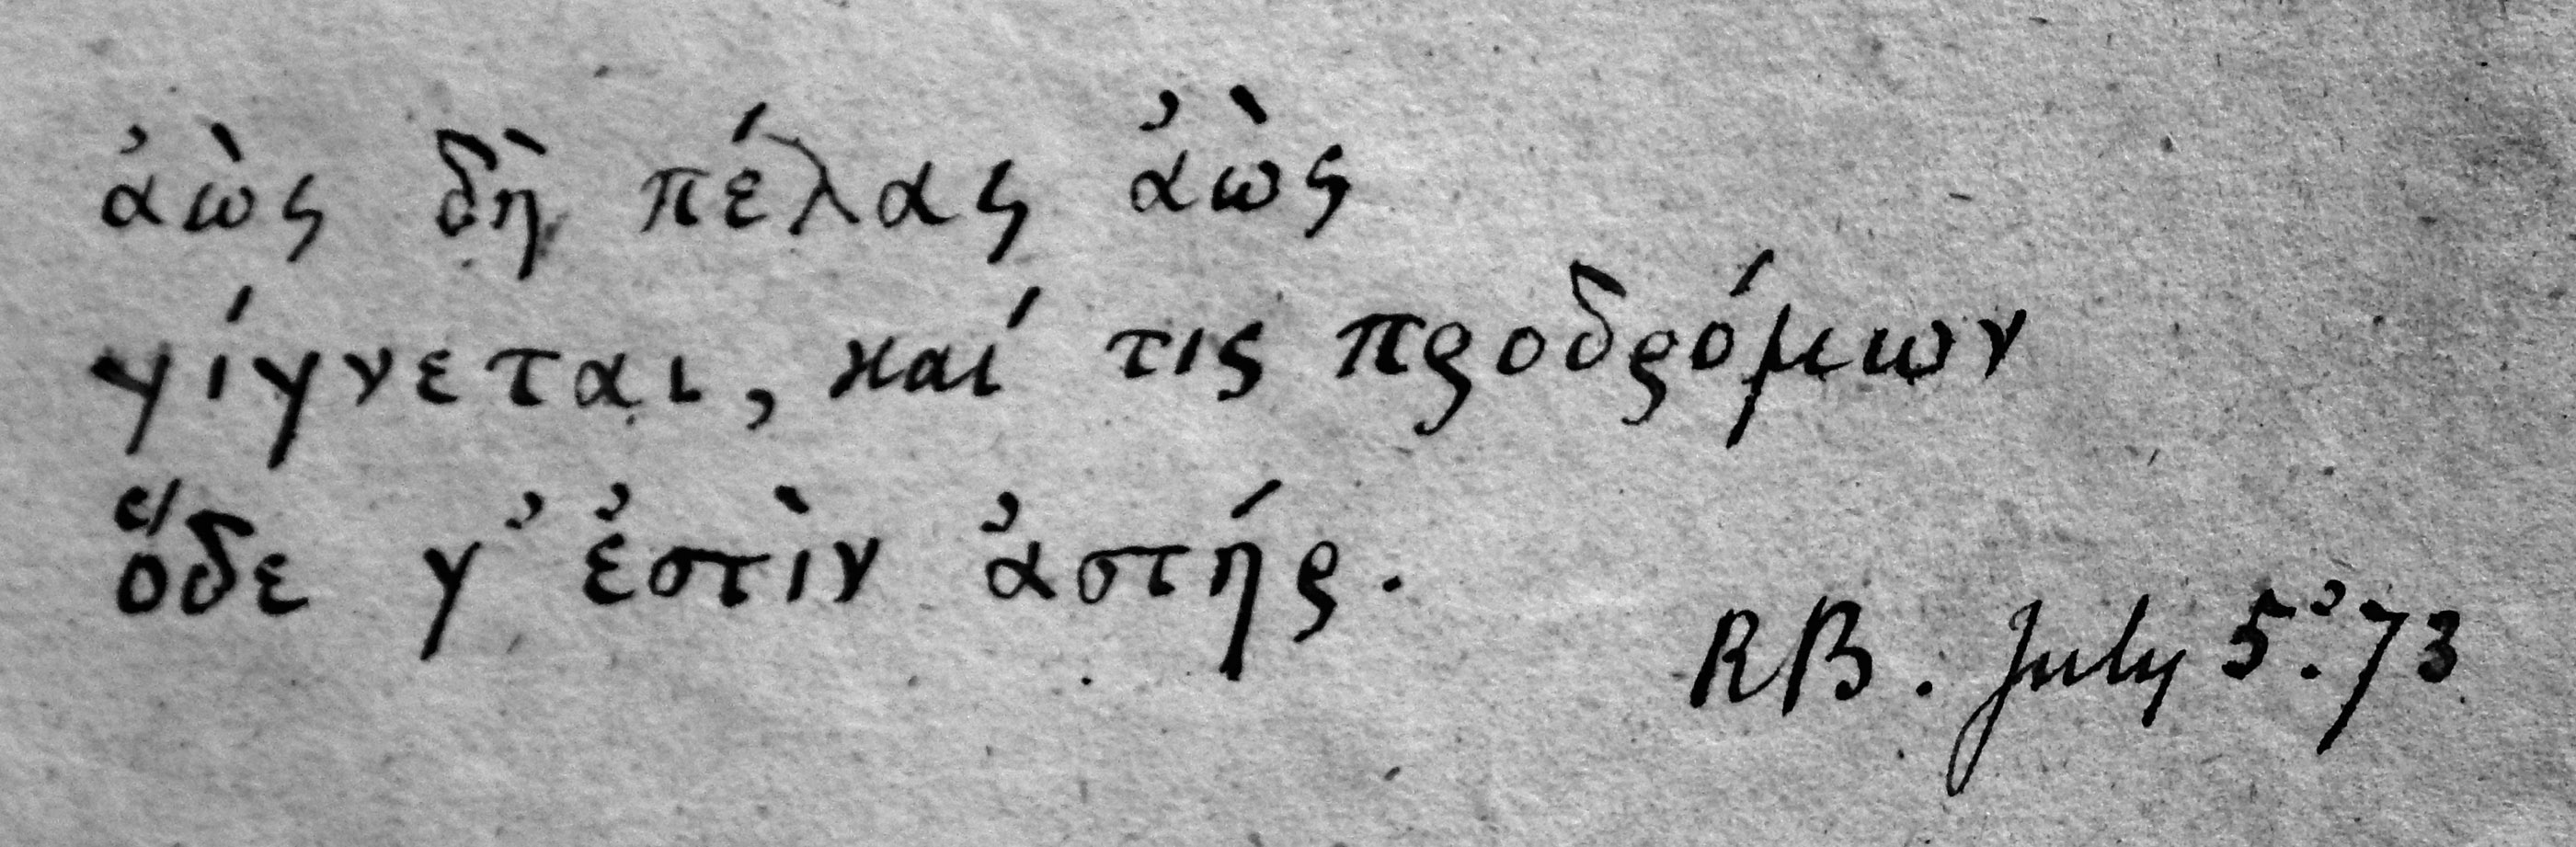 ἀὼς δὴ πέλας ἀὼς
γίγνεται, καί τις προδρόμων
ὅδε γ' ἐστὶν ἀστήρ.
RB. July 5. '73